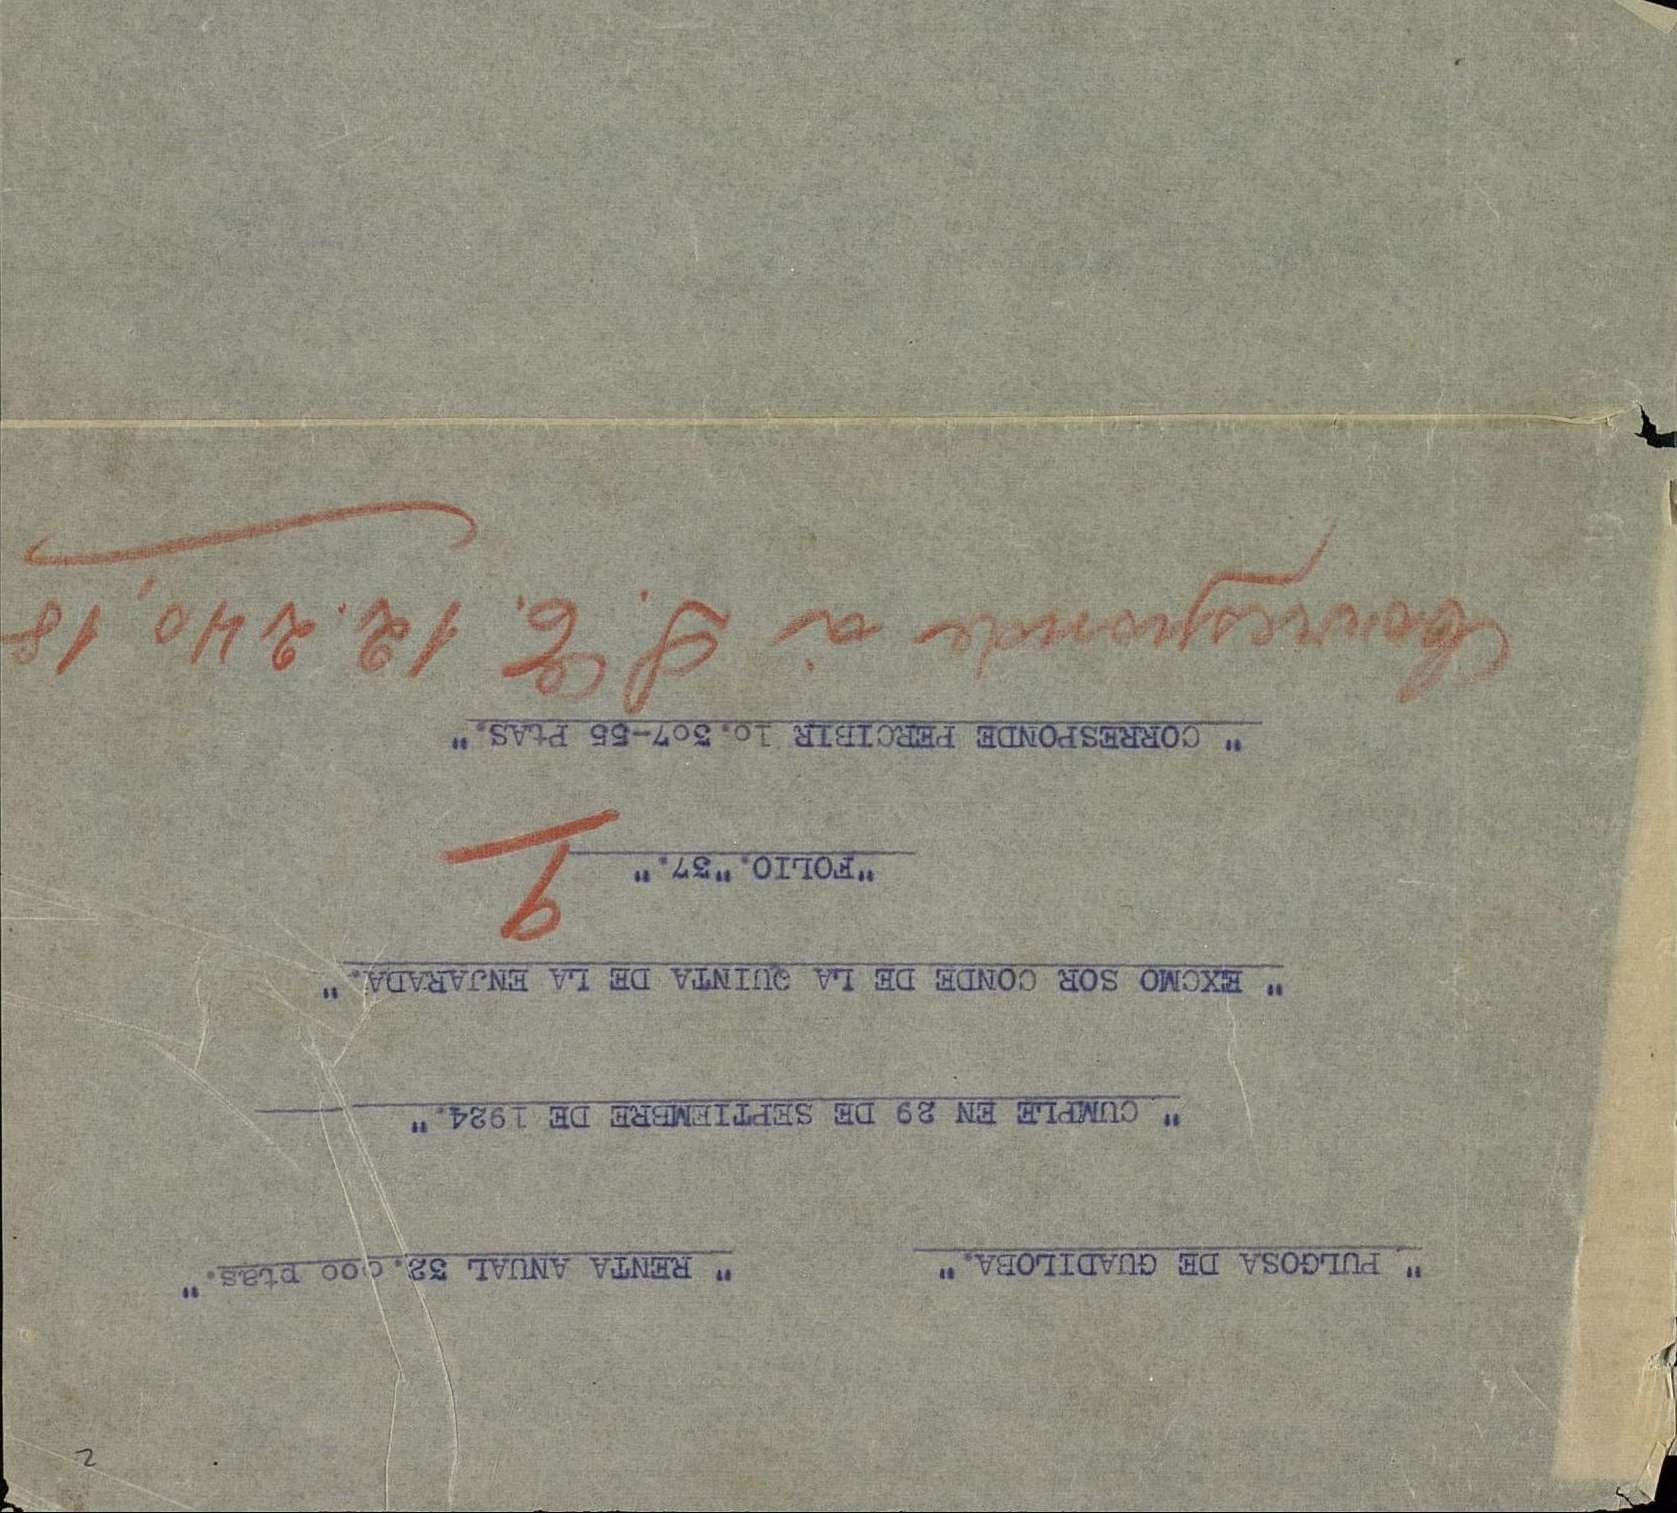 2
" PULGOSA DE GUADILOBA." " RENTA ANUAL 32.000 Ptas."
" CUMPLE EN 29 DE SEPTIEMBRE DE 1924."
" EXCMO SOR CONDE DE LA QUINTA DE LA ENJARADA."
9
"FOLIO."37."
" CORRESPONDE PERCIBIR 10.307-55 PtAS."
Corresponde á S. E. 12.240,18